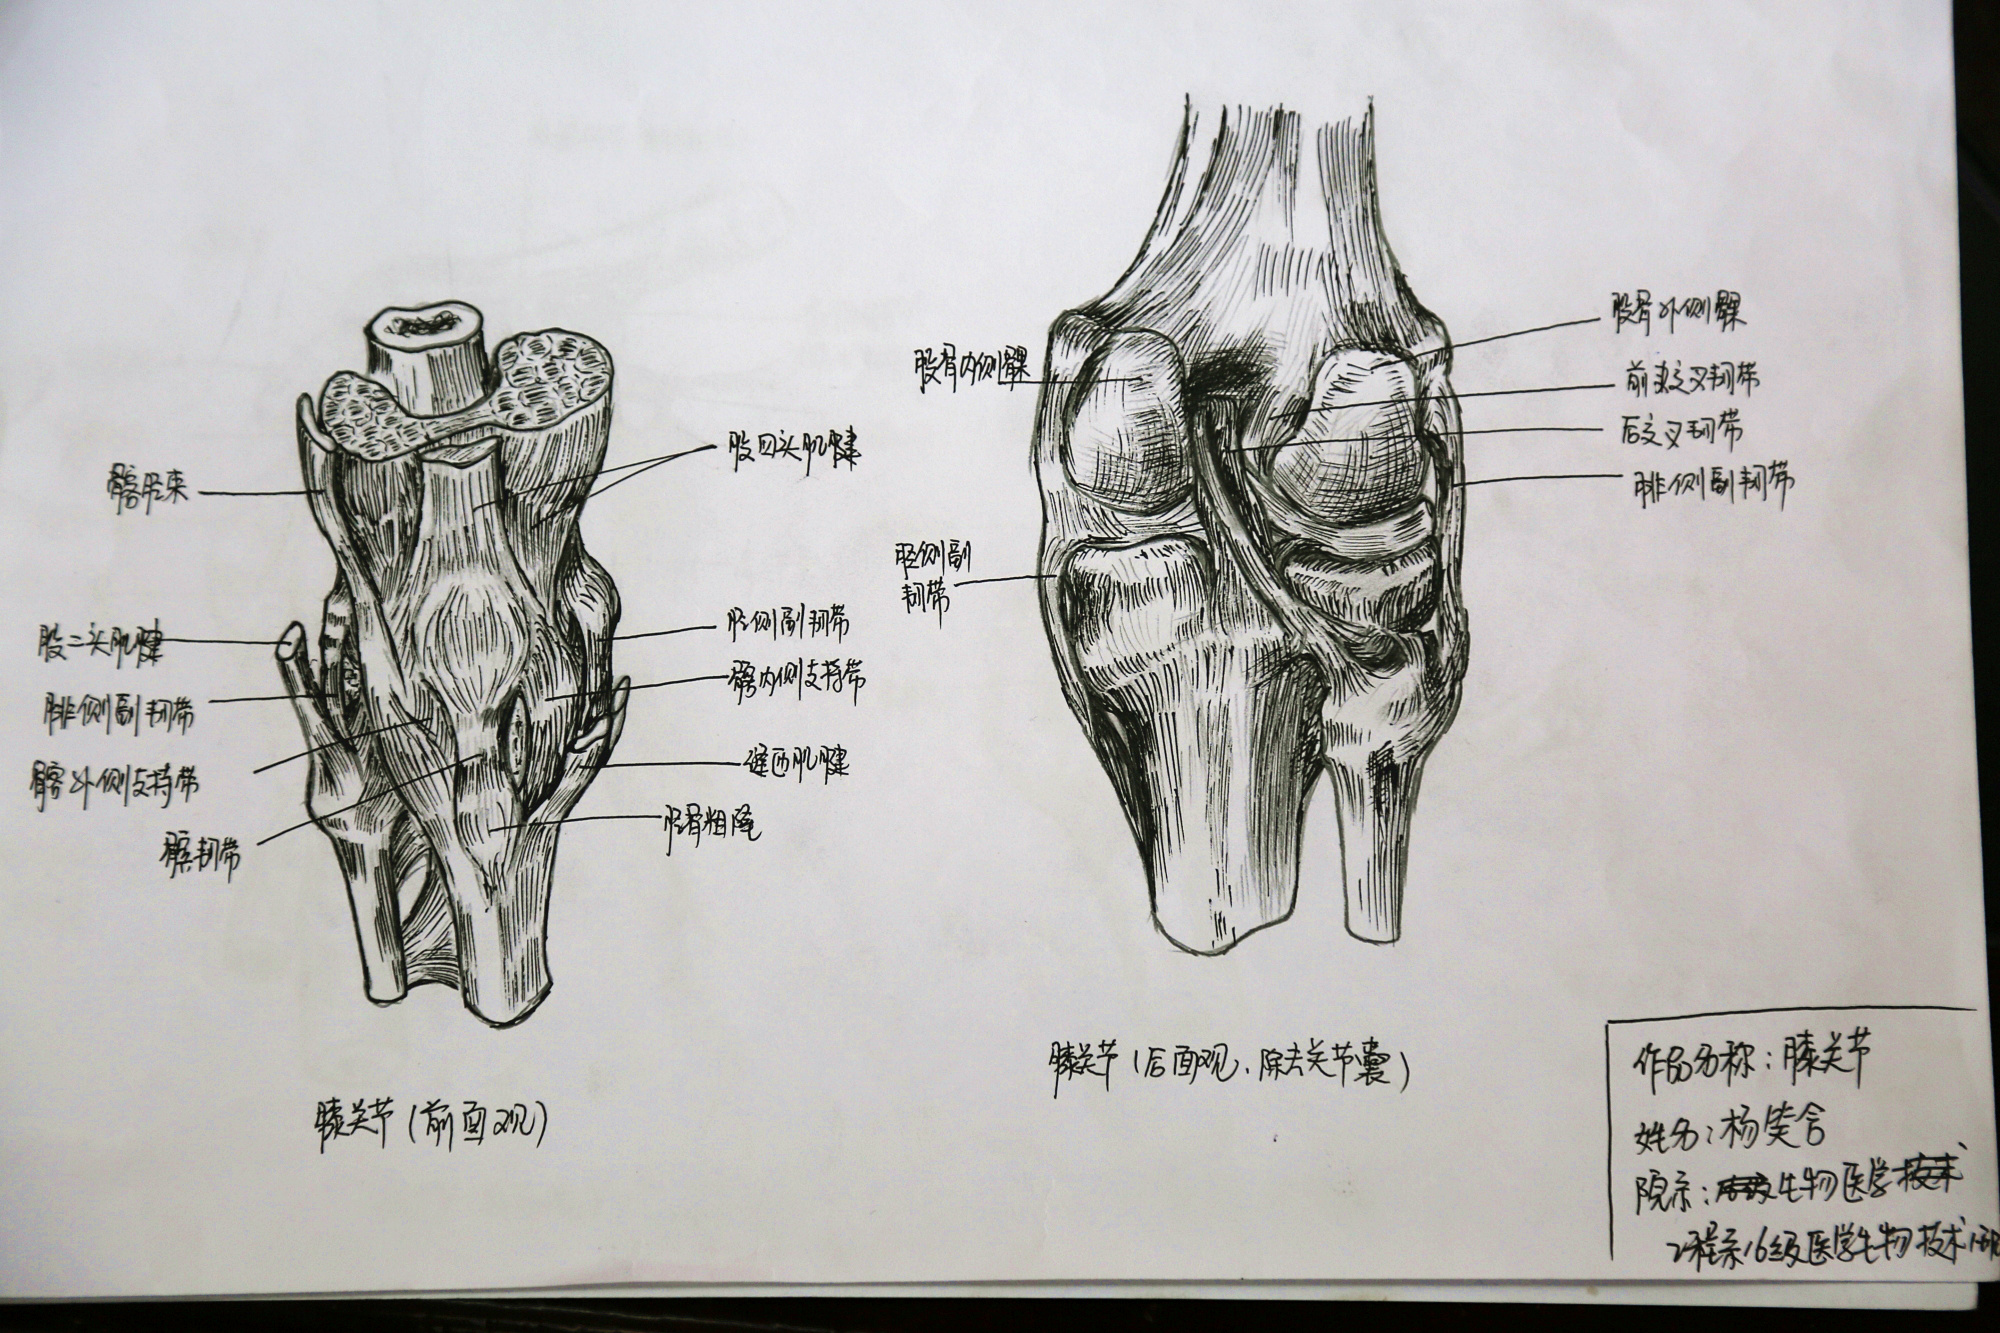 髂胫束
股二头肌腱
腓侧副韧带
髌外侧支持带
髌韧带
股四头肌腱
胫侧副韧带
髌内侧支持带
缝匠肌腱
胫骨粗隆
膝关节（前面观）
股骨内侧髁
胫侧副
韧带
股骨外侧髁
前交叉韧带
后交叉韧带
腓侧副韧带
膝关节（后面观、除去关节囊）
作品名称：膝关节
姓名：杨笑含
院系：生物医学
工程系16级医学生物技术1班